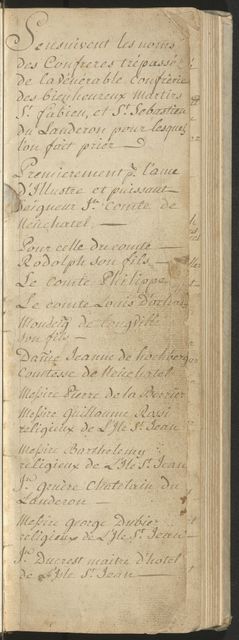 Sensuivent les noms
des Confreres trépassé
de la vénérable confrérie
des bienheureux Martirs
St. Fabien, et St. Sebastien
du Landeron pour lesquel
l'on fait prier
Premierement p. l'ame
d'Illustre et puissant
Seigneur Jn. Comte de
Neuchatel. —
Pour celle du comte —
Rodolph son fils —
Le comte Philippe
Le comte Louis d'orleans
de longville
son fils —
Dame Jeanne de hochberg
Comtesse de Neuchatel
Messire Pierre de la
Messire Guillaume Rossi
religieux de L'Ile St. Jean
Messire Barthelemy
religieux de L'Ile St. Jean
Jn. Gruére Chatelain du
Landeron —
Messire George Dubier
religieux de L'Ile St. Jean —
Jn. Ducrest maitre d'hotel
de L'Isle St. Jean —